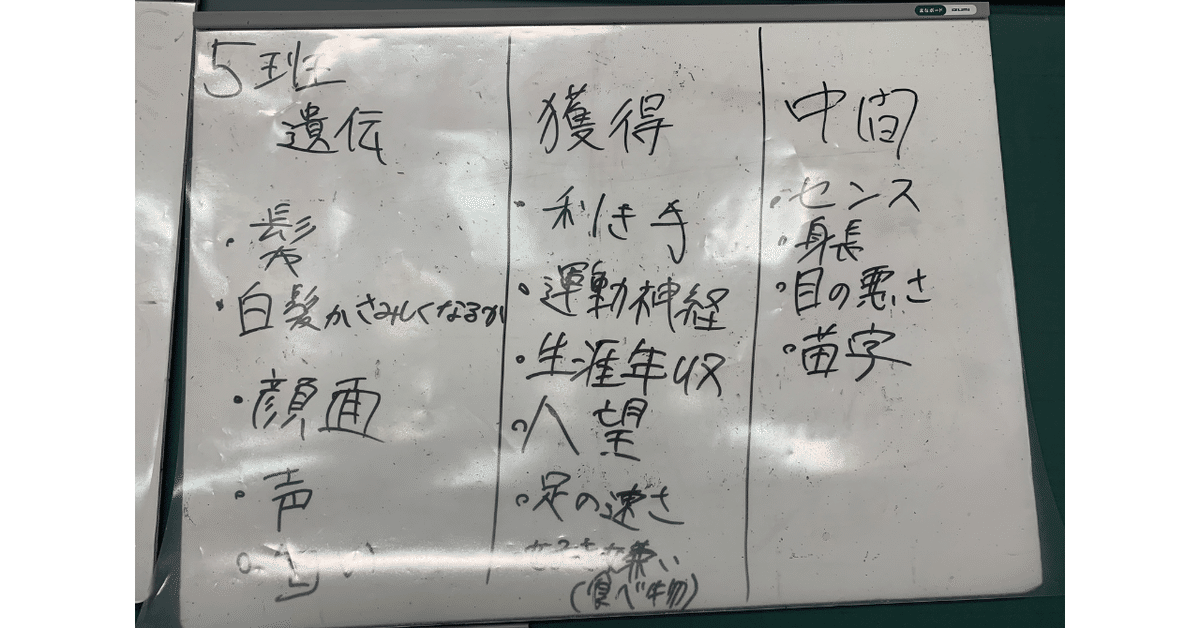 まなボード
5班
遺伝
・髪
・白髪かさみしくなるか
・顔面
・声
獲得
・利き手
・運動神経
・生涯年収
・人望
・足の速さ
(食べ物)
中間
・センス
・身長
・目の悪さ
・苗字